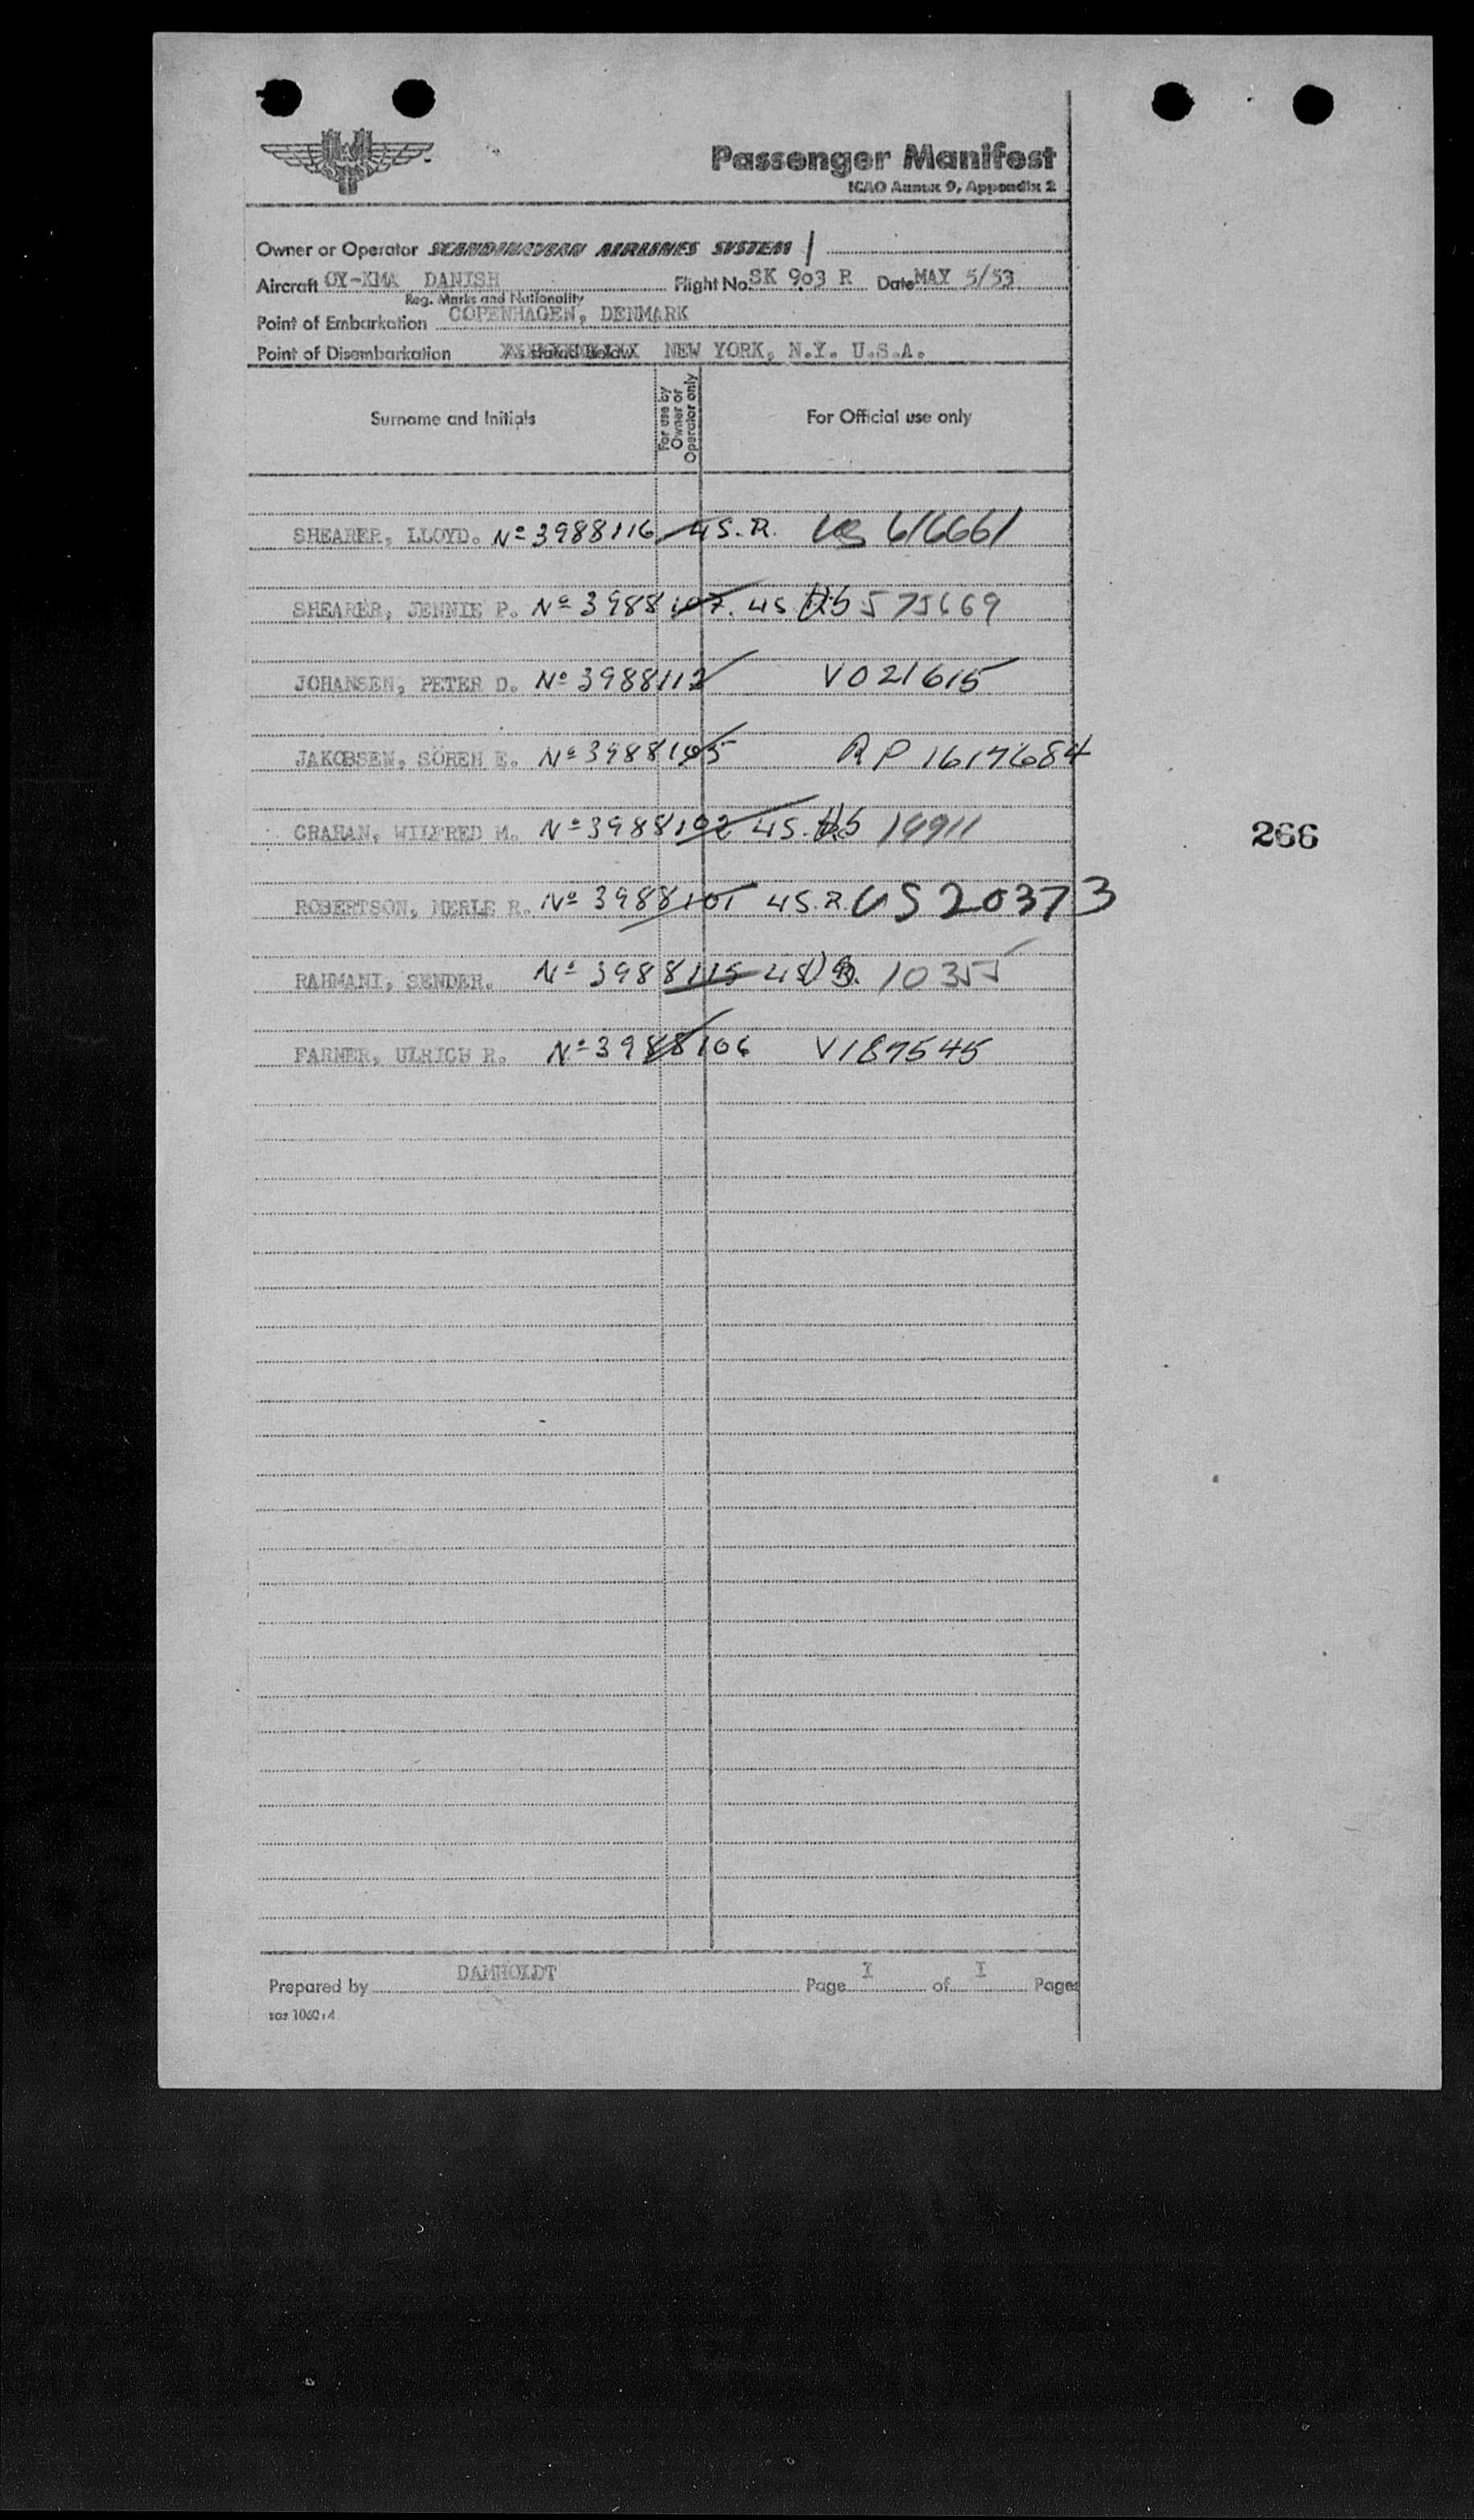 Passenger Manifest
ICAO Annex 9, Appendix 2
Owner or Operator SCANDINAVIAN AIRLINES SYSTEM
Aircraft OY-KMA DANISH Flight No. SK 903 R Date MAY 5/53
Reg. Marks and Nationality
Point of Embarkation COPENHAGEN, DENMARK
Point of Disembarkation As stated below NEW YORK, N.Y. U.S.A.
Surname and Initials For use by Owner or Operator only For Official use only
SHEARER, LLOYD. Nº 3988116 US.R. US 616661
SHEARER, JENNIE P. Nº 3988107. US 575669
JOHANSEN, PETER D. Nº 3988112 V021615
JAKOBSEN, SÖREN E. Nº 3988105 RP 1617684
GRAHAN, WILFRED M. Nº 3988102 US. 19911
ROBERTSON, MERLE R. Nº 3988101 US.R. US 20373
RAHMANI, SENDER. Nº 3988115 10355
FARNER, ULRICH R. Nº 3988106 V187545
266
Prepared by DAMHOLDT Page I of I Pages
sas 1060:4